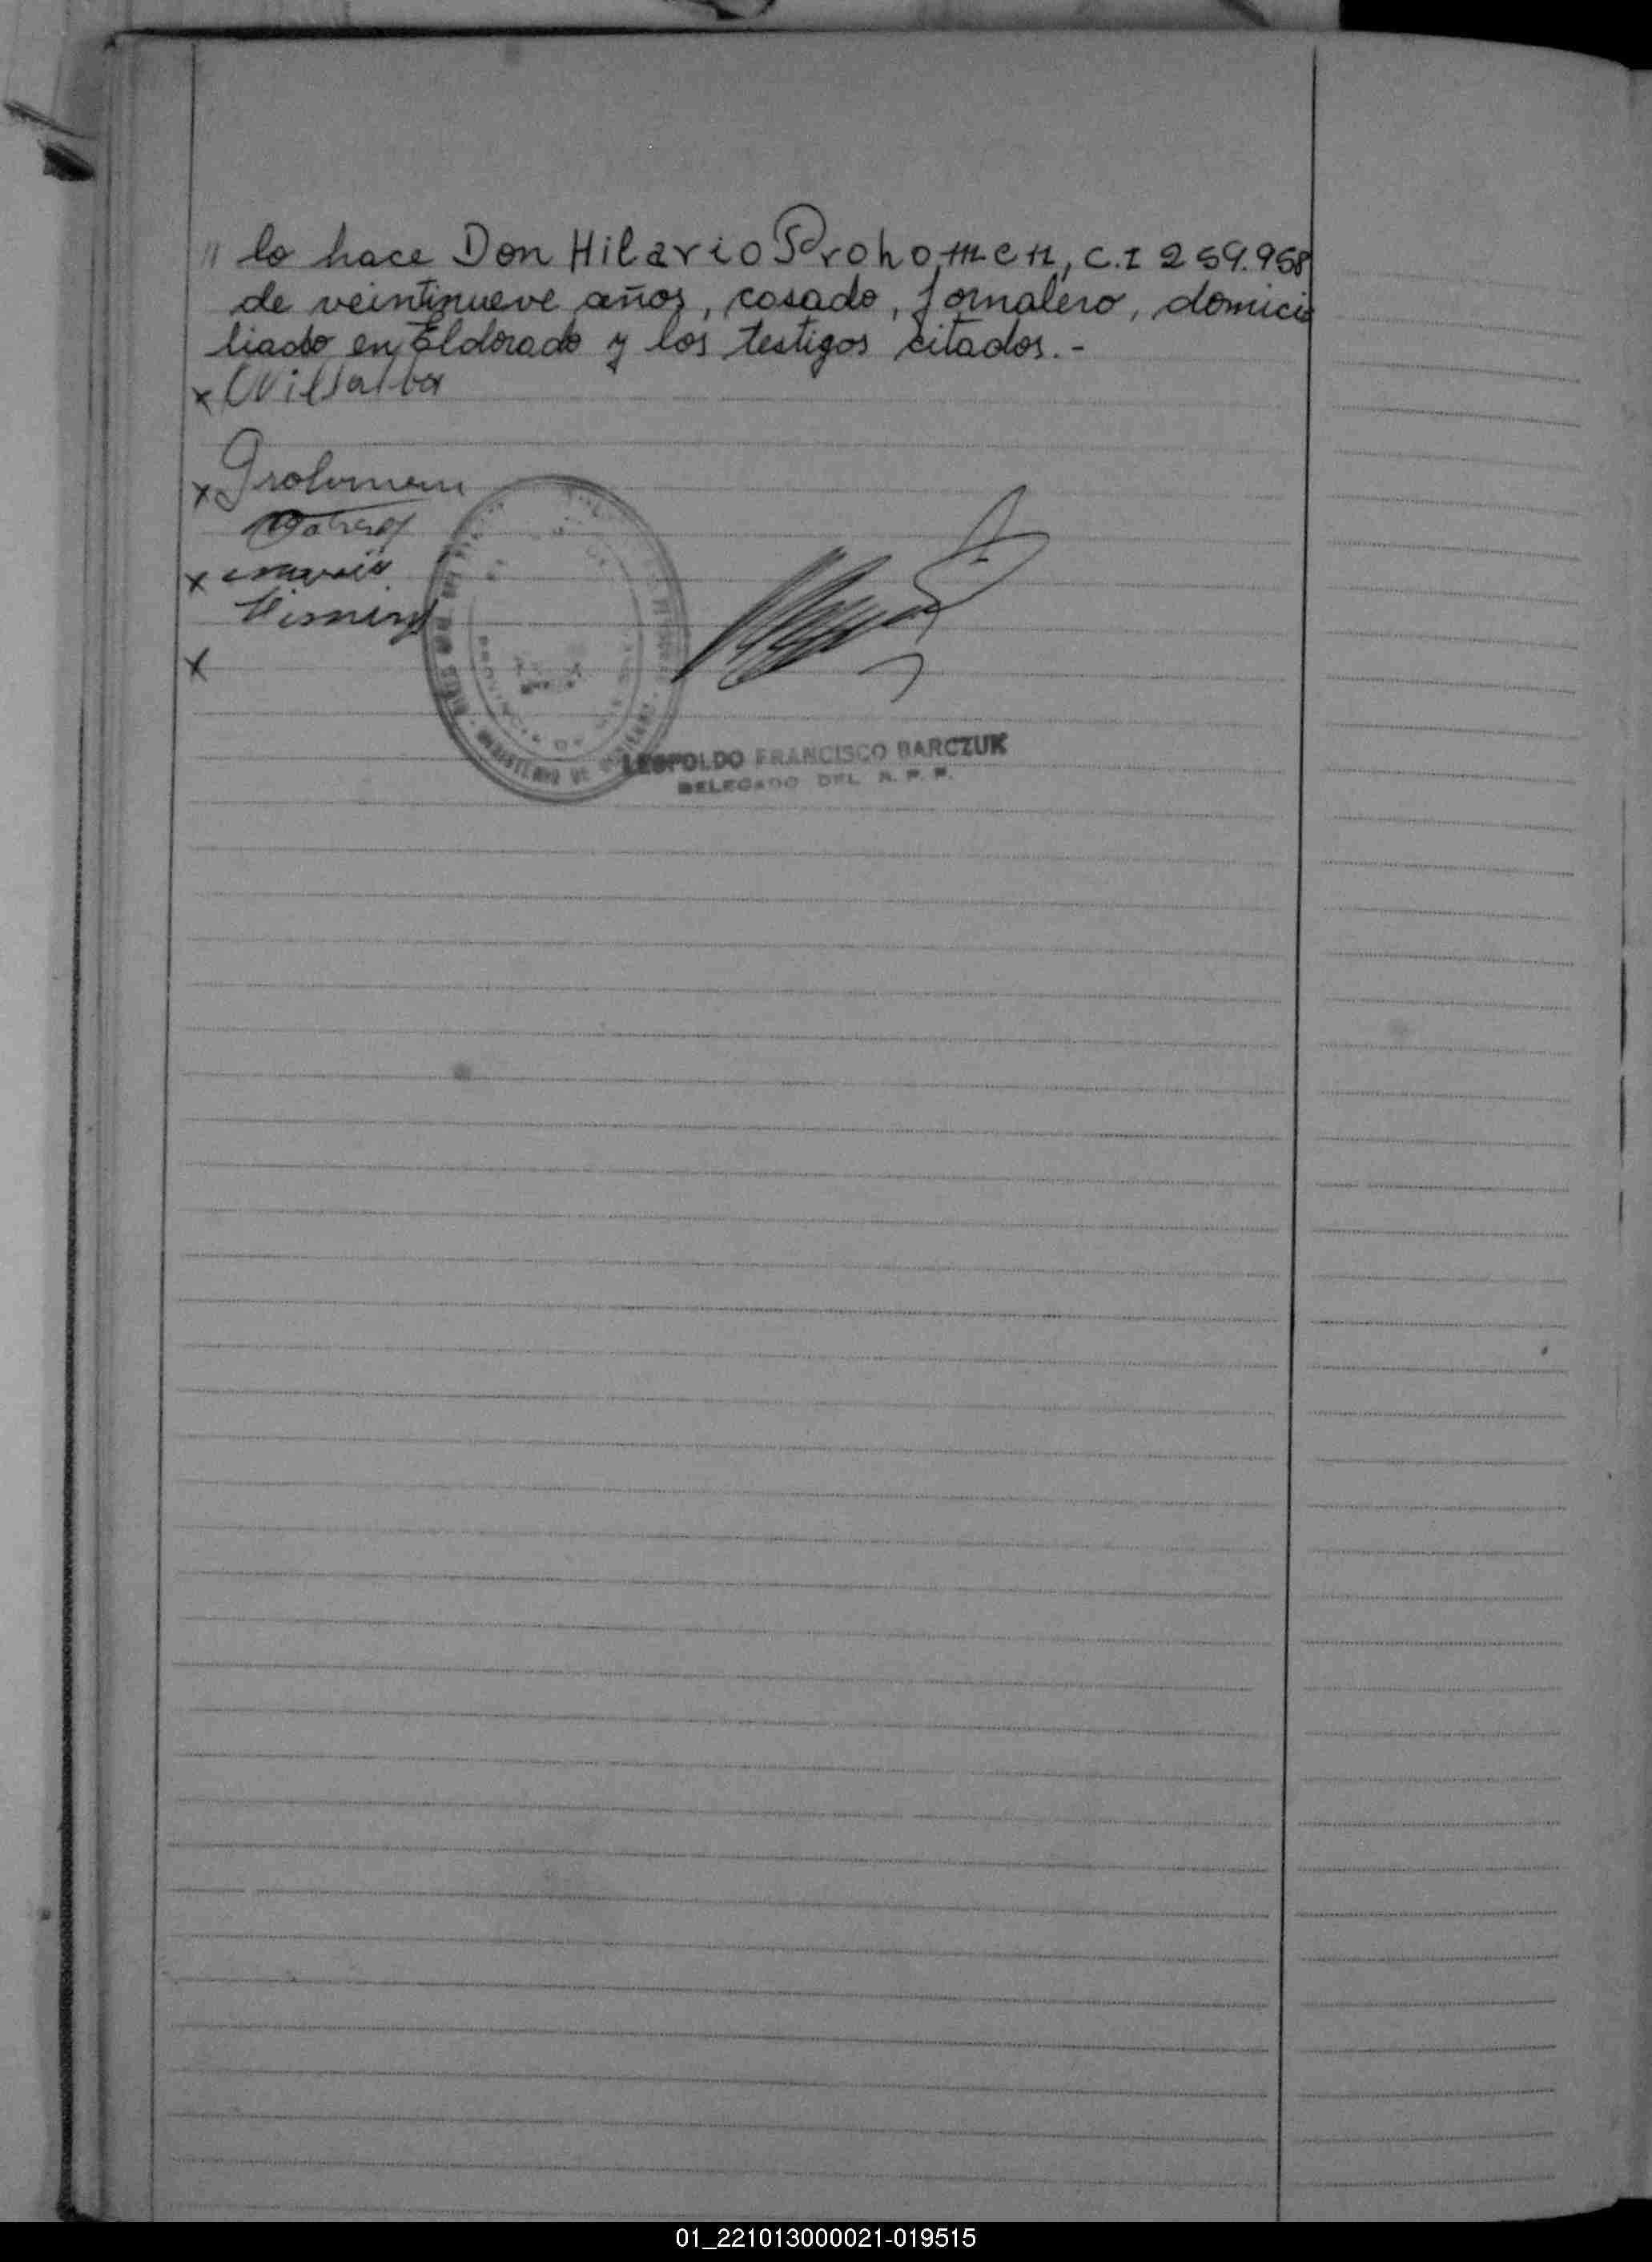 " lo hace Don Hilario Prohomen, C.I 259.958
de veintinueve años, casado, jornalero, domici
liado en Eldorado y los testigos citados.-
x Villalba
x
x
x
PROVINCIA DE
MINISTERIO DE
LEOPOLDO FRANCISCO BARCZUK
DELEGADO DEL R. P. P.
01_221013000021-019515